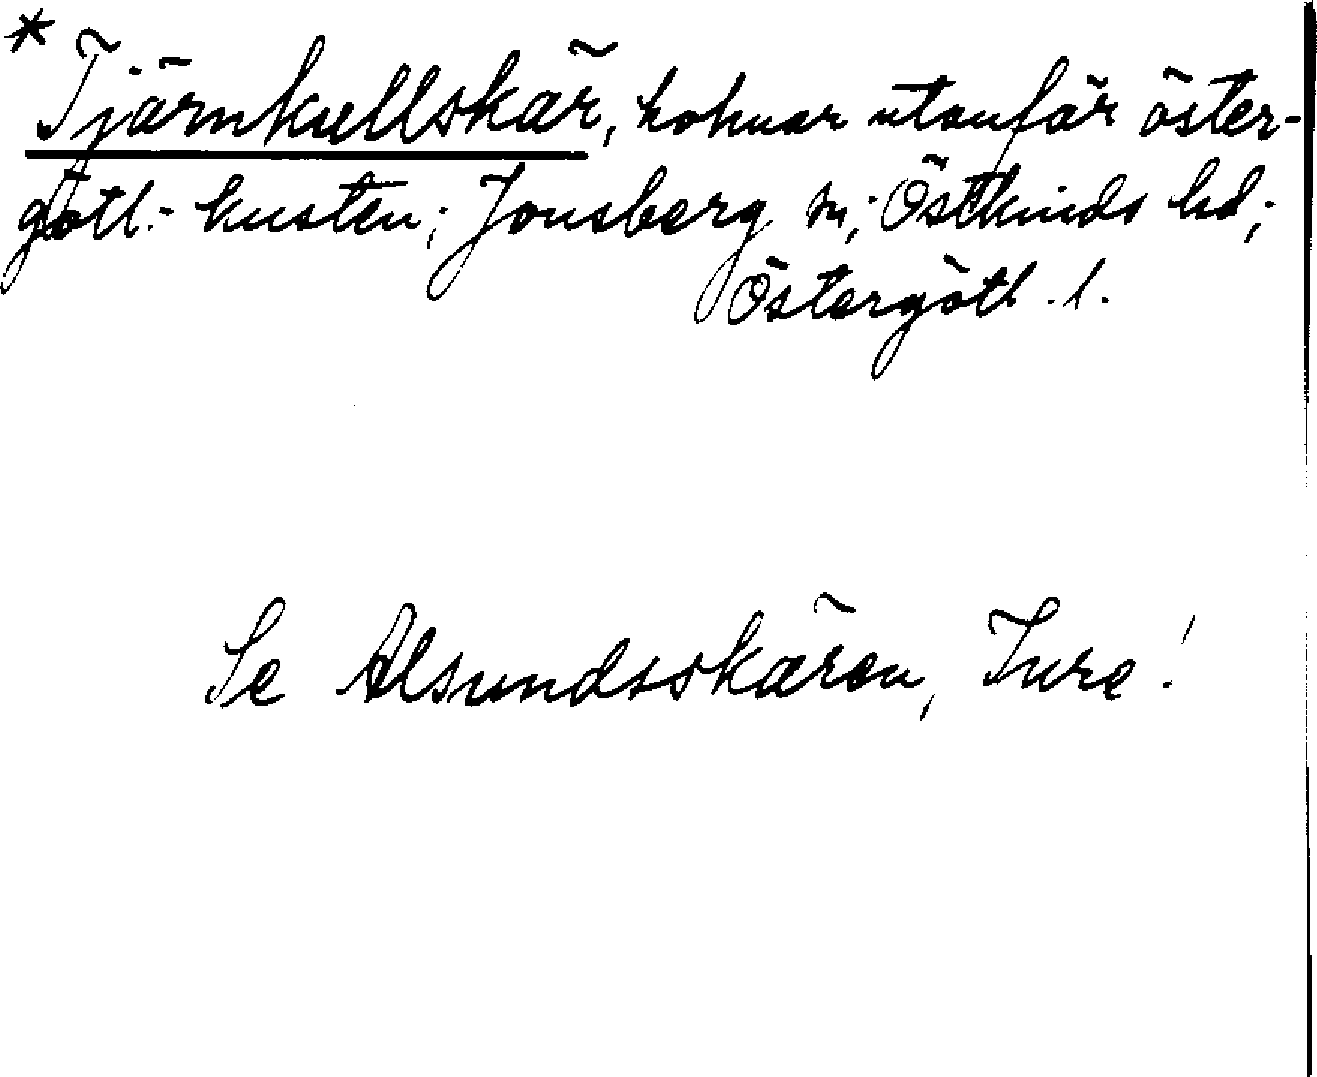 * Tjärnkullskär, holmar utanför öster-
götl.- kusten; Jonsberg sn; Östkinds hd;
Östergötl. l.
Se Alsundsskären, Ture!